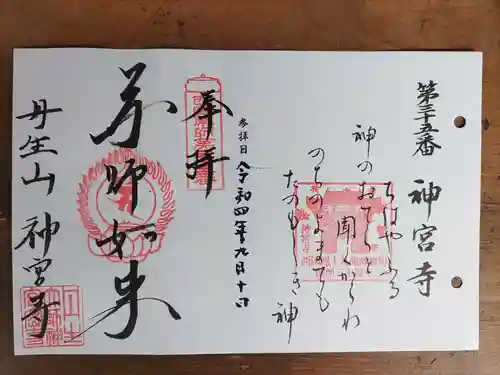 第三十五番 神宮寺
ちはやふる
神のおてらと
聞くからわ
のちのよまでも
たのもしき神
参拝日 令和四年九月十日
奉拝
薬師如来
丹生山 神宮寺